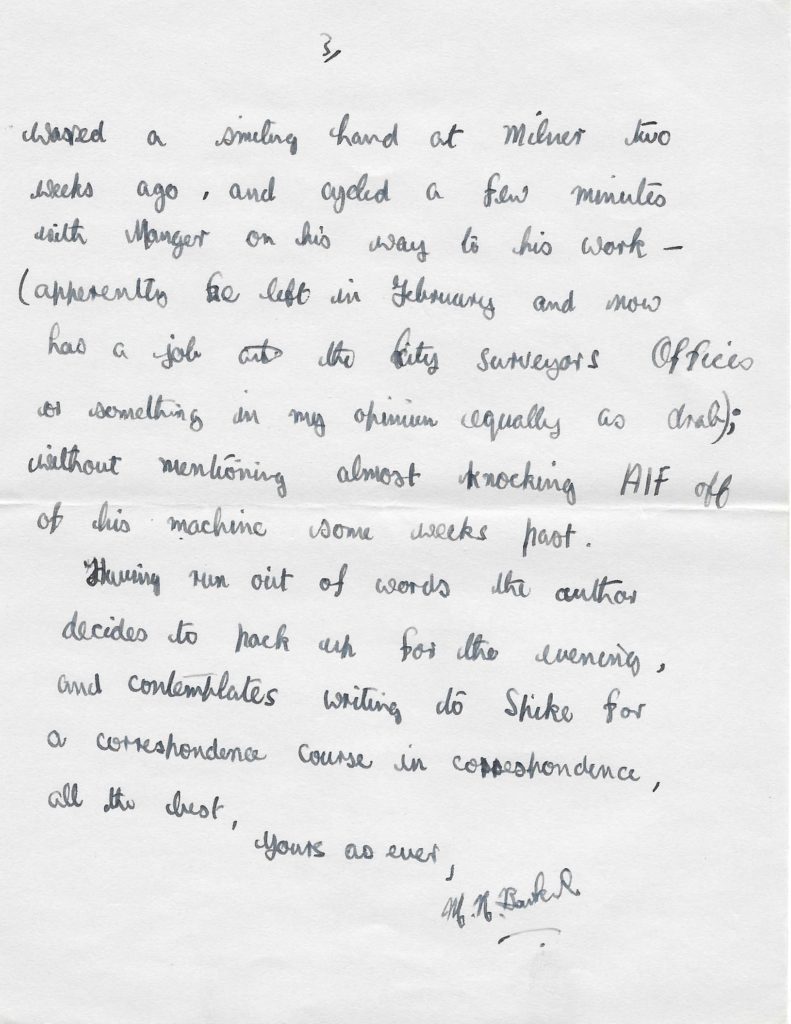 3,
waved a smiling hand at Milner two
weeks ago, and cycled a few minutes
with Manger on his way to his work —
(apperently he left in February and now
has a job at the City surveyors Offices
or something in my opinion equally as drab);
without mentioning almost knocking AIF off
of his machine some weeks past.
Having run out of words the author
decides to pack up for the evening,
and contemplates writing to Spike for
a correspondence course in correspondence,
all the best,
Yours as ever,
M. N.